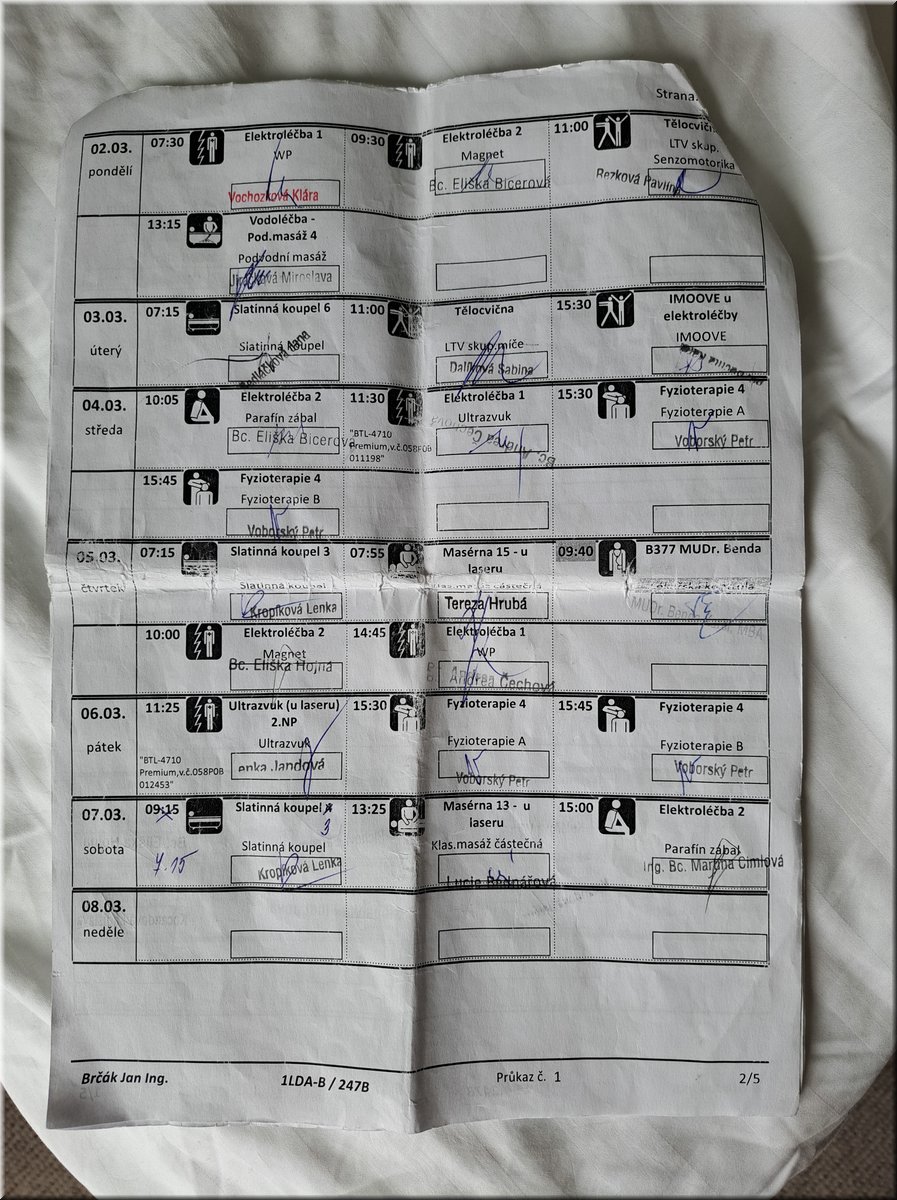 Strana
02.03.
pondělí
07:30
Elektroléčba 1
WP
Vochozková Klára
09:30
Elektroléčba 2
Magnet
Bc. Eliška Bicerová
11:00
LTV skup.
Senzomotorika
Rezková Pavlína
13:15
Vodoléčba -
Pod.masáž 4
Podvodní masáž
Miroslava
03.03.
úterý
07:15
Slatinná koupel 6
Slatinná koupel
11:00
Tělocvična
LTV skup.míče
Dalíková Sabina
15:30
IMOOVE u
elektroléčby
IMOOVE
04.03.
středa
10:05
Elektroléčba 2
Parafín zábal
Bc. Eliška Bicerová
11:30
"BTL-4710
Premium,v.č.058P0B
011198"
Elektroléčba 1
Ultrazvuk
15:30
Fyzioterapie 4
Fyzioterapie A
Voborský Petr
15:45
Fyzioterapie 4
Fyzioterapie B
Voborský Petr
05.03.
čtvrtek
07:15
Slatinná koupel 3
Slatinná koupel
Kropíková Lenka
07:55
Masérna 15 - u
laseru
Klas.masáž částečná
Tereza Hrubá
09:40
B377 MUDr. Benda
MUDr. Benda
MBA
10:00
Elektroléčba 2
Magnet
Bc. Eliška Hojná
14:45
Elektroléčba 1
WP
Andrea Čechová
06.03.
pátek
11:25
"BTL-4710
Premium,v.č.058P0B
012453"
Ultrazvuk (u laseru)
2.NP
Ultrazvuk
enka Jandová
15:30
Fyzioterapie 4
Fyzioterapie A
Voborský Petr
15:45
Fyzioterapie 4
Fyzioterapie B
Voborský Petr
07.03.
sobota
09:15
7.15
Slatinná koupel
3
Slatinná koupel
Kropíková Lenka
13:25
Masérna 13 - u
laseru
Klas.masáž částečná
Lucie Bednářová
15:00
Elektroléčba 2
Parafín zábal
Ing. Bc. Martina Cimlová
08.03.
neděle
Brčák Jan Ing.
1LDA-B / 247B
Průkaz č. 1
2/5